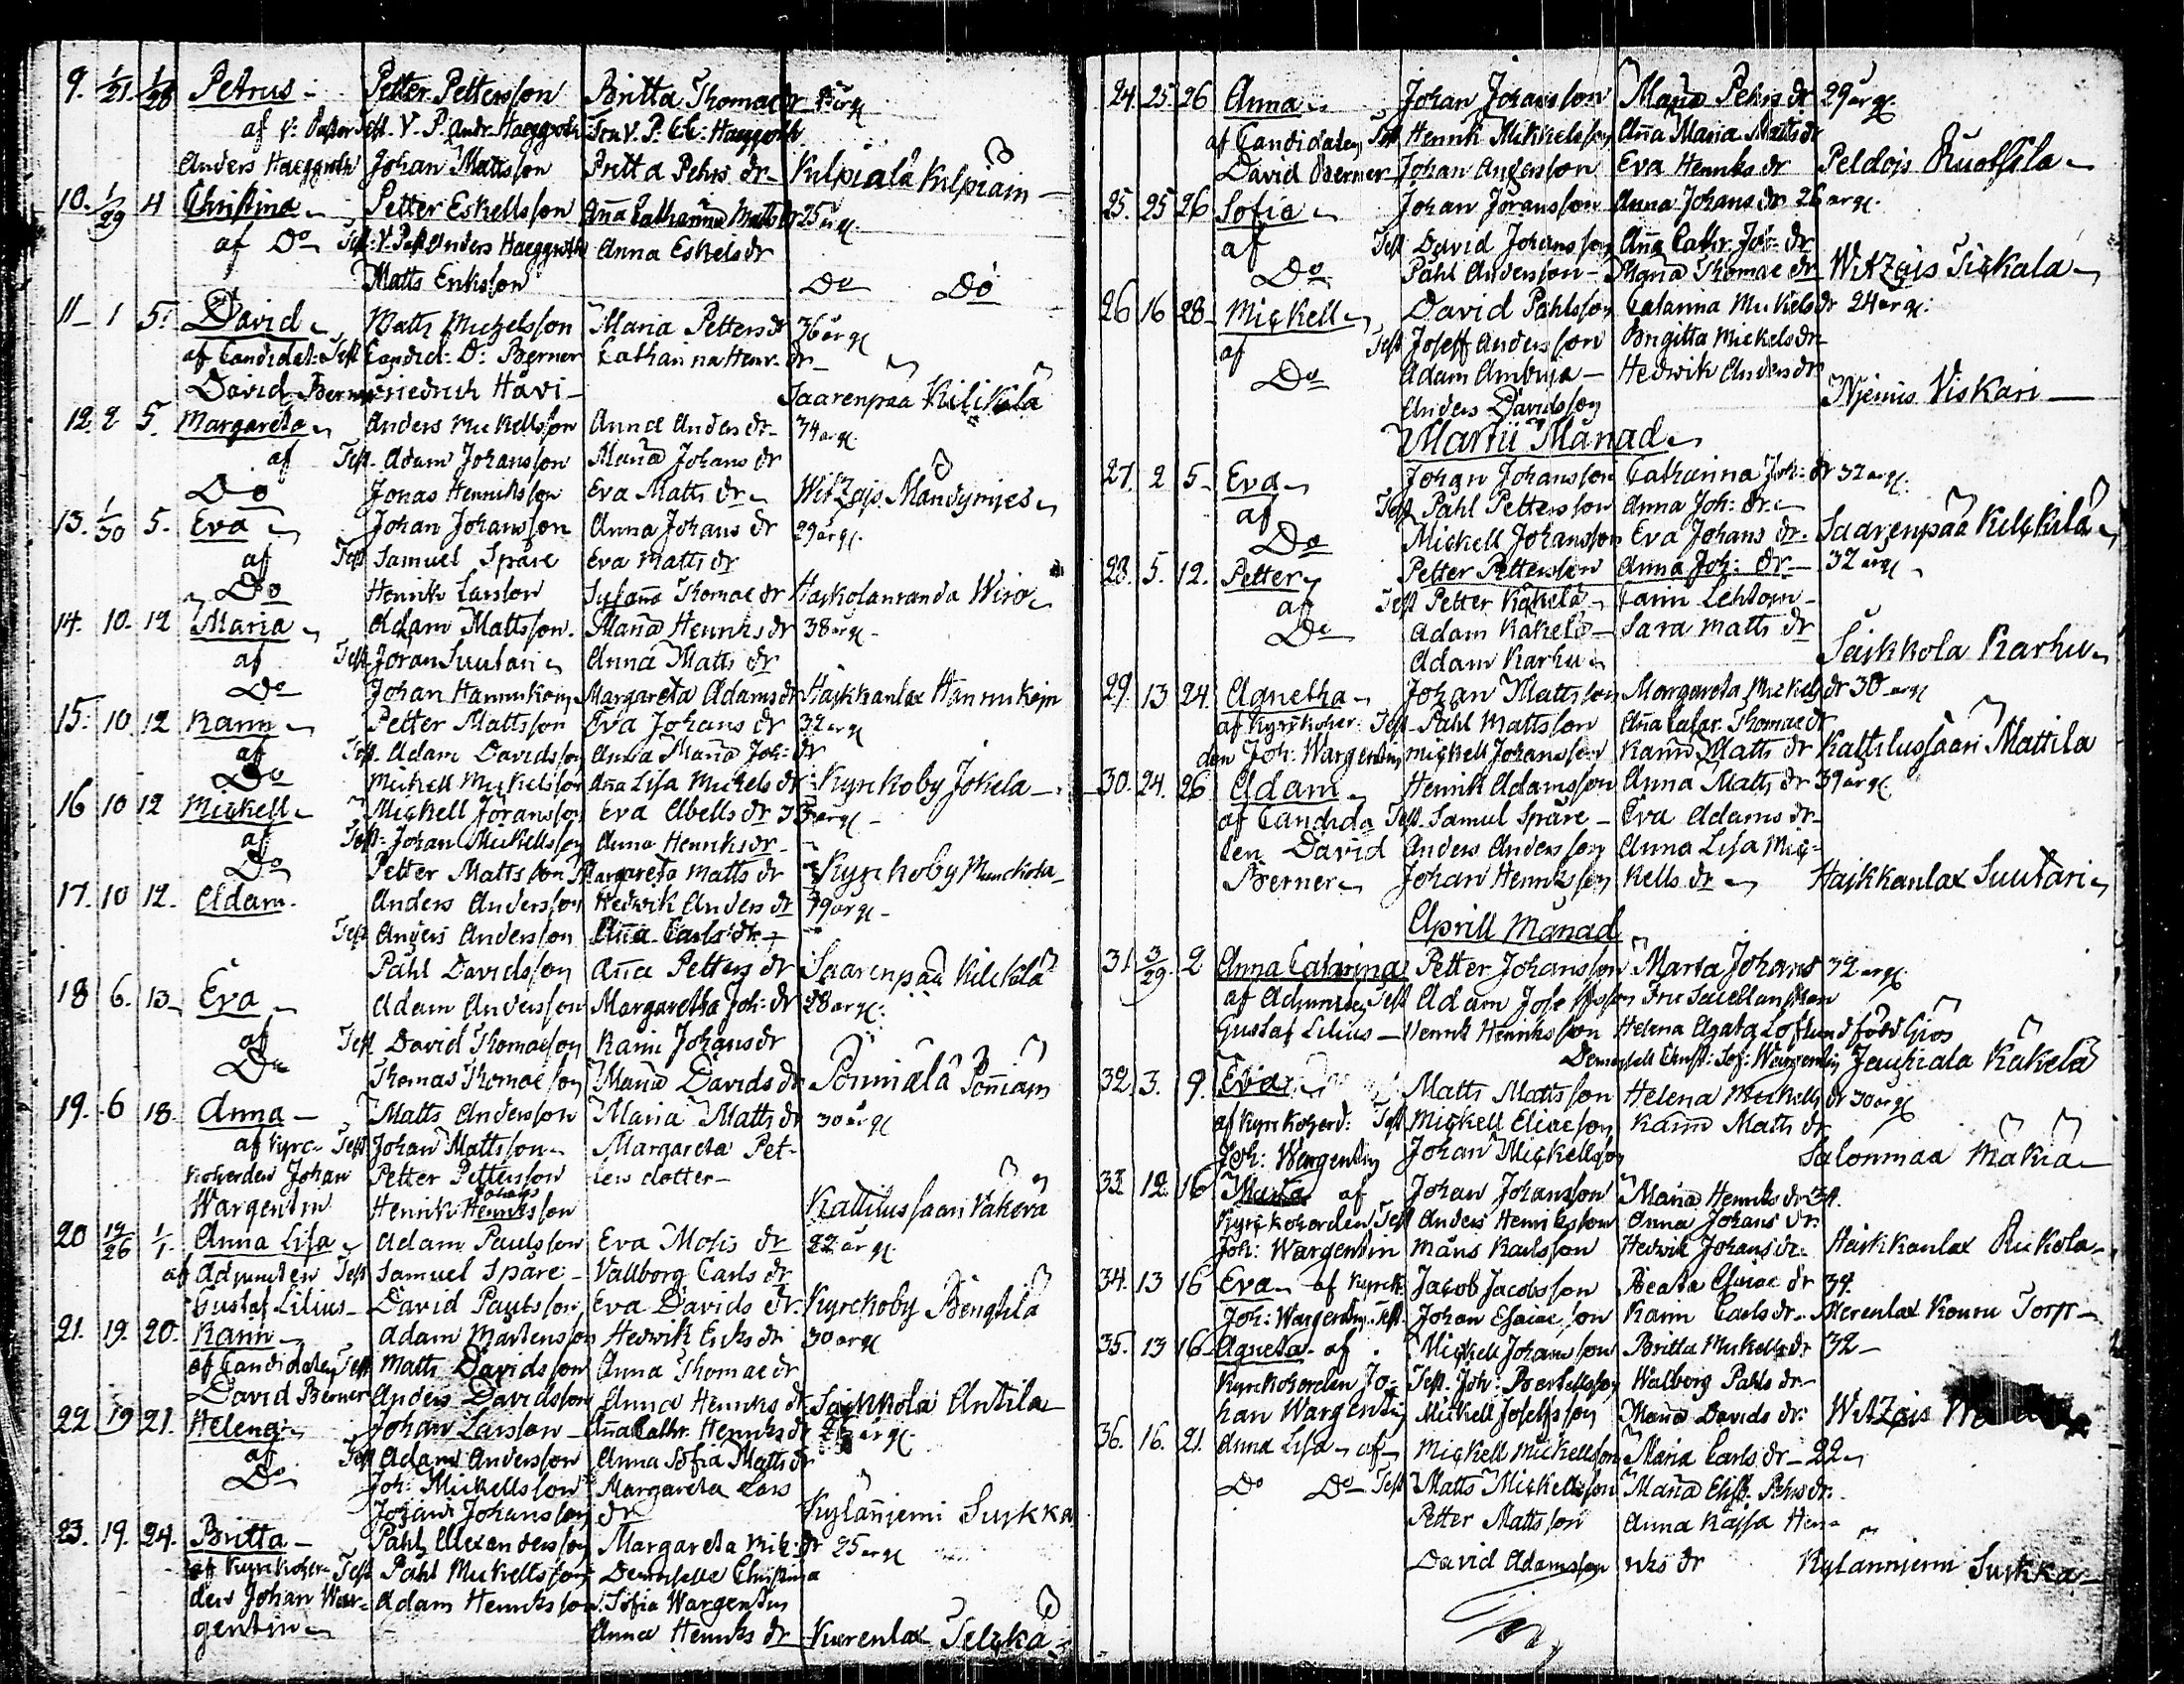 9. 1/21. 1/28 Petrus - Petter Pettersson Britta Thomae dr
af V: Pastor Test. V. P. Andr. Haeggroth
Anders Haeggroth Johan Mattsson Britta Pehrs dr Kulpiala Kulpiain
10. 1/29 4 Christina Petter Eskellsson Aña Catharina Matts dr 25 år gl.
af Do Test: V. Past Anders Haeggroth Anna Eskels dr
Matts Eriksson Do Do
11 1 5. David Matts Michelsson Maria Petters dr 36 år gl
af Candidat. Test Candid: D: Berner Catharina Henr. dr
David Berner Friedrich Havi Saarenpää Kilikilä
12. 2 5. Margareta Anders Mickellsson Anna Anders dr 34 år gl.
af Test. Adam Johansson Maria Johans dr
Do Jonas Henriksson Eva Matts dr Witzais Mändynijes
13. 1/30 5. Eva Johan Johansson Anna Johans dr 29 år gl.
af Test Samuel Spåre Eva Matts dr
Do Henrik Larsson Susaña Thomae dr Haikolanranda Wiro
14. 10. 12 Maria Adam Mattsson. Maria Henriks dr 38 år gl
af Test Jöran Suutari Anna Matts dr
Do Johan Hannukain Margareta Adams dr Haikkanlax Hannukain
15. 10. 12 Karin Petter Mattsson Eva Johans dr 32 år gl
af Test. Adam Davidsson Anna Maria Joh: dr
Do Mickell Mickelsson Aña Lisa Mickels dr Kyrckoby Jokela
16 10 12 Mickell Mickell Jöransson Eva Abells dr 33 år gl
af Test: Johan Mickellsson Anna Henriks dr
Do Petter Mattsson Margareta Matts dr Kyrckoby Munckola
17. 10 12. Adam. Anders Andersson Hedwik Anders dr 39 år gl
Test Anders Andersson Aña Carls dr
Påhl Davidsson Aña Petters dr Saarenpää Kilikilä
18 6. 13 Eva Adam Andersson Margaretha Joh: dr 28 år gl.
af Test David Thomaeson Karin Johans dr
Do Thomas Thomaeson Maria Davids dr Pönniälä Pöñiain
19. 6 18. Anna Matts Andersson Maria Matts dr 30 år gl
af Kyrc- Test Johan Mattsson Margareta Pet-
koherden Johan Petter Pettersson ters dotter
Wargentin Henrik Henriksson Kattilussaari Väkevä
20 12/26 1/1. Anna Lisa Adam Paulsson Eva Mosis dr 22 år gl.
af Adjuncten Test Samuel Spåre Vallborg Carls dr
Gustaf Lilius David Paulsson Eva Davids dr. Kyrckoby Bengtilä
21. 19. 20. Karin Adam Mårtensson Hedwik Eriks dr 30 år gl
af Candidaten Test Matts Davidsson Anna Thomae dr
David Berner Anders Davidsson Anna Henriks dr Säikkölä Antila
22 19 21. Helena Johan Larsson Aña Cathr. Henriks dr år gl.
af Test Adam Andersson Anna Sofia Matts dr
Do Joh: Mickellsson Margareta Lars
Johan Johansson dr Kylänniemi Surkka
23. 19. 24. Britta Påhl Alexandersson Margareta Mik: dr 25 år gl
af Kyrckoher- Test Påhl Mickellsson Demoiselle Christina
den Johan War- Adam Henriksson Sofia Wargentin
gentin Anna Henriks dr Kaerenlax Telckä
24. 25. 26 Anna Johan Johansson Maria Pehrs dr 29 år gl.
af Candidaten Test Henrik Mikkelsson Aña Maria Matts dr
David Berner Johan Andersson Eva Henriks dr Peldois Ruottila
25. 25 26 Sofia Johan Jöransson Anna Johans dr 26 år gl.
af Test David Johansson Aña Cathr. Joh: dr
Do Påhl Andersson Maria Thomae dr Witzais Tickala
26 16 28 Mickell David Påhlsson Catarina Mickels dr 24 år gl.
af Test Joseff Andersson Brigitta Mickels dr
Do Adam Ambrja Hedwik Anders dr
Anders Davidsson Niemis Viskari
Martii Månad
27. 2 5 Eva Johan Johansson Catharina Joh: dr 32 år gl.
af Test Påhl Pettersson Anna Joh: dr.
Do Mickell Johansson Eva Johans dr. Saarenpää Kilckilä
28. 5. 12. Petter Petter Pettersson Anna Joh: dr 32 år gl
af Test Petter Käkelä Karin Lehtoin
Do Adam Käkelä Sara Matts dr
Adam Karhu Säikkölä Karhu
29. 13 24. Agnetha Johan Mattsson Margareta Mickels dr 30 år gl
af Kyrckoher- Test Påhl Mattsson Aña Catar. Thomae dr
den Joh: Wargentin Mickell Johansson Karin Matts dr Kattilussaari Mattila
30. 24. 26 Adam Henrik Adamsson Anna Matts dr 39 år gl.
af Candida Test. Samul Spåre Eva Adams dr
ten David Anders Andersson Anna Lisa Mic-
Berner Johan Henriksson kells dr Haikkanlax Suutari
Aprill Månad
31. 3/29. 2 Anna Catarina Petter Johansson Marta Johans 32 år gl.
af Adjuncten Test Adam Joseffsson
Gustaf Lilius Henrik Henriksson Helena Agata Löflund född Gros
Demoiselle Christ: Sof: Wargentin Jauhiala Käkelä
32. 3. 9. Eva Matts Mattsson Helena Mickells dr 30 år gl
af Kyrckoherd: Test Mickell Eliaeson Karin Matts dr
Joh: Wargentin Johan Mickellsson Salonmaa Mäkiä
33 12 16 Maria af Johan Johansson Maria Henriks dr 34.
Kyrckoherden Test Anders Henriksson Anna Johans dr.
Joh: Wargentin Måns Karlsson Hedwik Johans dr. Haikkanlax Rickola
34. 13 16 Eva af Kyrck. Jacob Jacobsson Beata Esaiae dr 34.
Joh: Wargentin. Test. Johan Esaiaeson Karin Carls dr. Kerenlax Kouru Torp
35. 13 16 Agneta af Mickell Johansson Britta Mickells dr 32
Kyrckoherden Jo- Test. Joh: Bertellsson Walborg Påhls dr
han Wargentin Mickell Josefsson Maria Davids dr: Witzais
36. 16. 21. Anna Lisa af Mickell Mickellsson Maria Carls dr 22
Do Do Test Matts Mickellsson Maria Elis: Pehrs dr.
Petter Mattsson Anna Kajsa Hen-
David Adamsson riks dr Kylänniemi Surkka